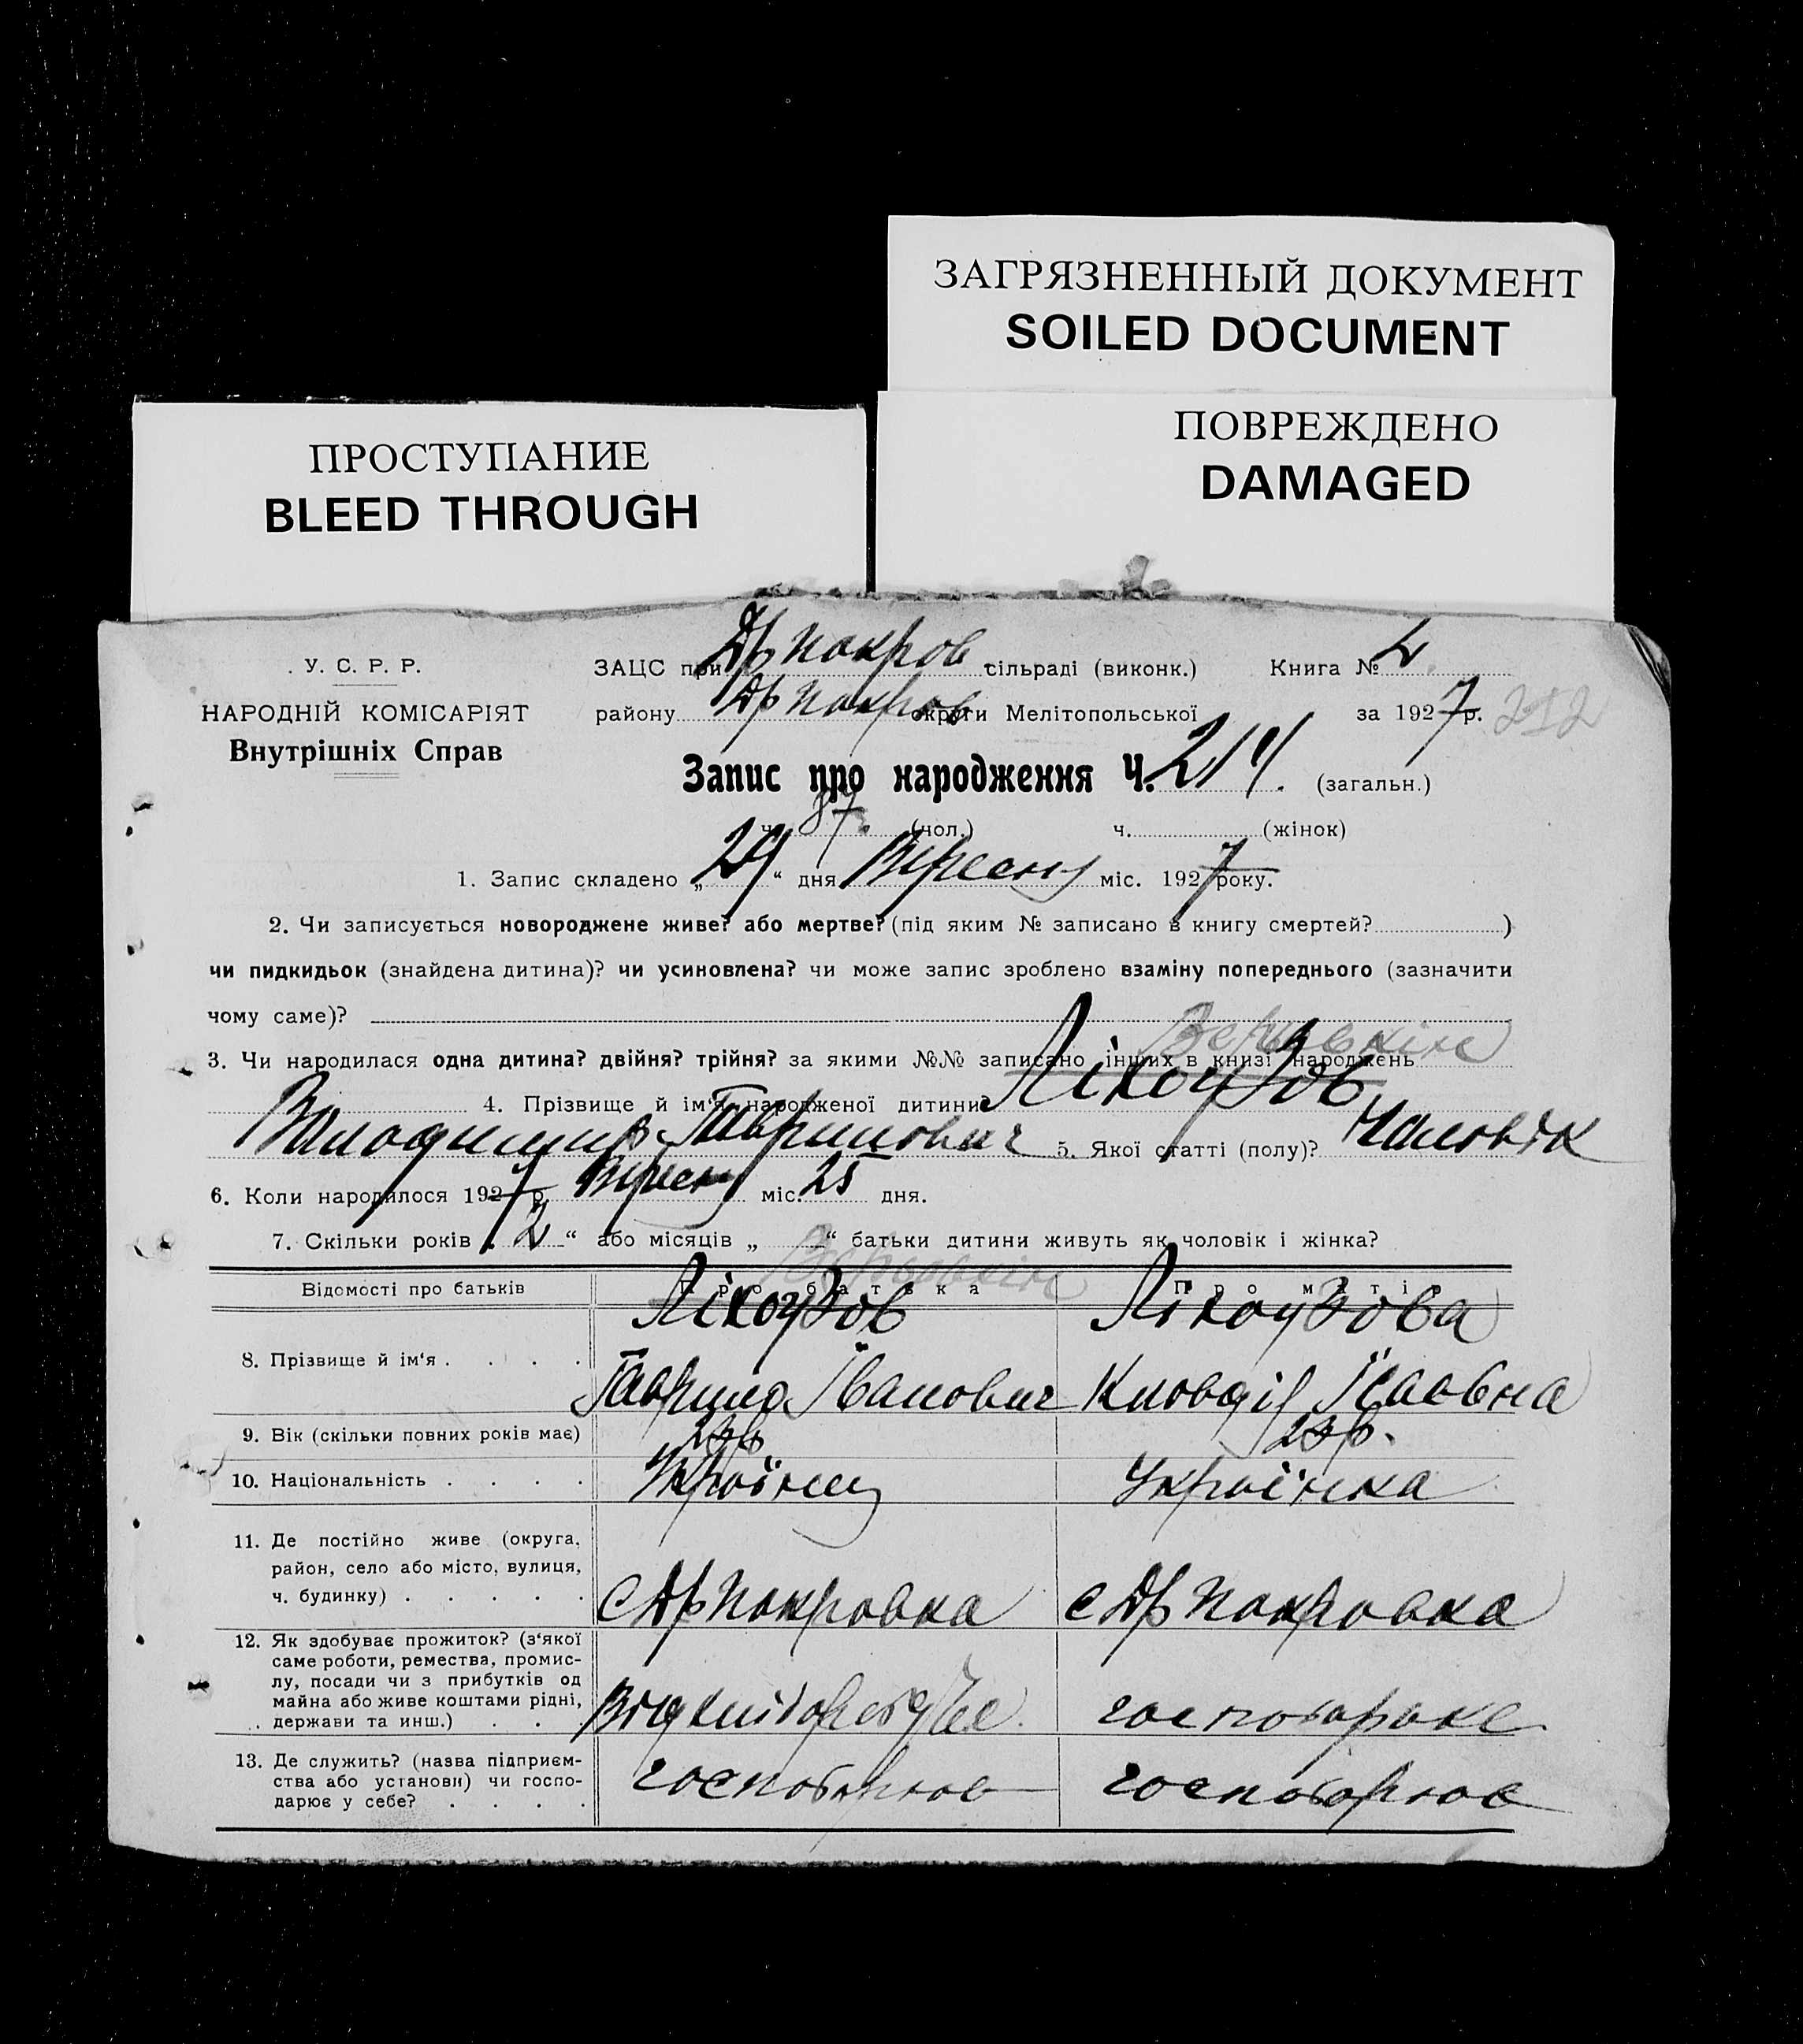 ЗАГРЯЗНЕННЫЙ ДОКУМЕНТ
SOILED DOCUMENT
ПОВРЕЖДЕНО
DAMAGED
ПРОСТУПАНИЕ
BLEED THROUGH
У. С. Р. Р.
НАРОДНІЙ КОМІСАРІЯТ
Внутрішніх Справ
ЗАЦС при Др Покров сільраді (виконк.) Книга № 2
району Др Покров округи Мелітопольської за 1927 р. 212
Запис про народження Ч. 214. (загальн.)
ч. 87. (чол.) ч. (жінок)
1. Запис складено „29“ дня Вересня міс. 1927 року.
2. Чи записується новороджене живе? або мертве? (під яким № записано в книгу смертей? )
чи пидкидьок (знайдена дитина)? чи усиновлена? чи може запис зроблено взаміну попереднього (зазначити
чому саме)?
3. Чи народилася одна дитина? двійня? трійня? за якими №№ записано інших в книзі народжень
4. Прізвище й ім‘я народженої дитини?
Володимир Гаврилович 5. Якої статті (полу)? Чоловік
6. Коли народилося 1927 р. Вересня міс. 25 дня.
7. Скільки років „2“ або місяців „ “ батьки дитини живуть як чоловік і жінка?
Відомості про батьків Про батька Про матір
8. Прізвище й ім‘я . . . .
Гаврило Іванович
9. Вік (скільки повних років має) 23 р. 23 р.
10. Національність . . . . Українец Українка
11. Де постійно живе (округа,
район, село або місто, вулиця,
ч. будинку) . . . . . с Др Покровка с Др Покровка
12. Як здобуває прожиток? (з‘якої
саме роботи, ремества, промис-
лу, посади чи з прибутків од
майна або живе коштами рідні,
держави та инш.) . .
13. Де служить? (назва підприєм-
ства або установи) чи госпо-
дарює у себе? . . . . господарює господарює